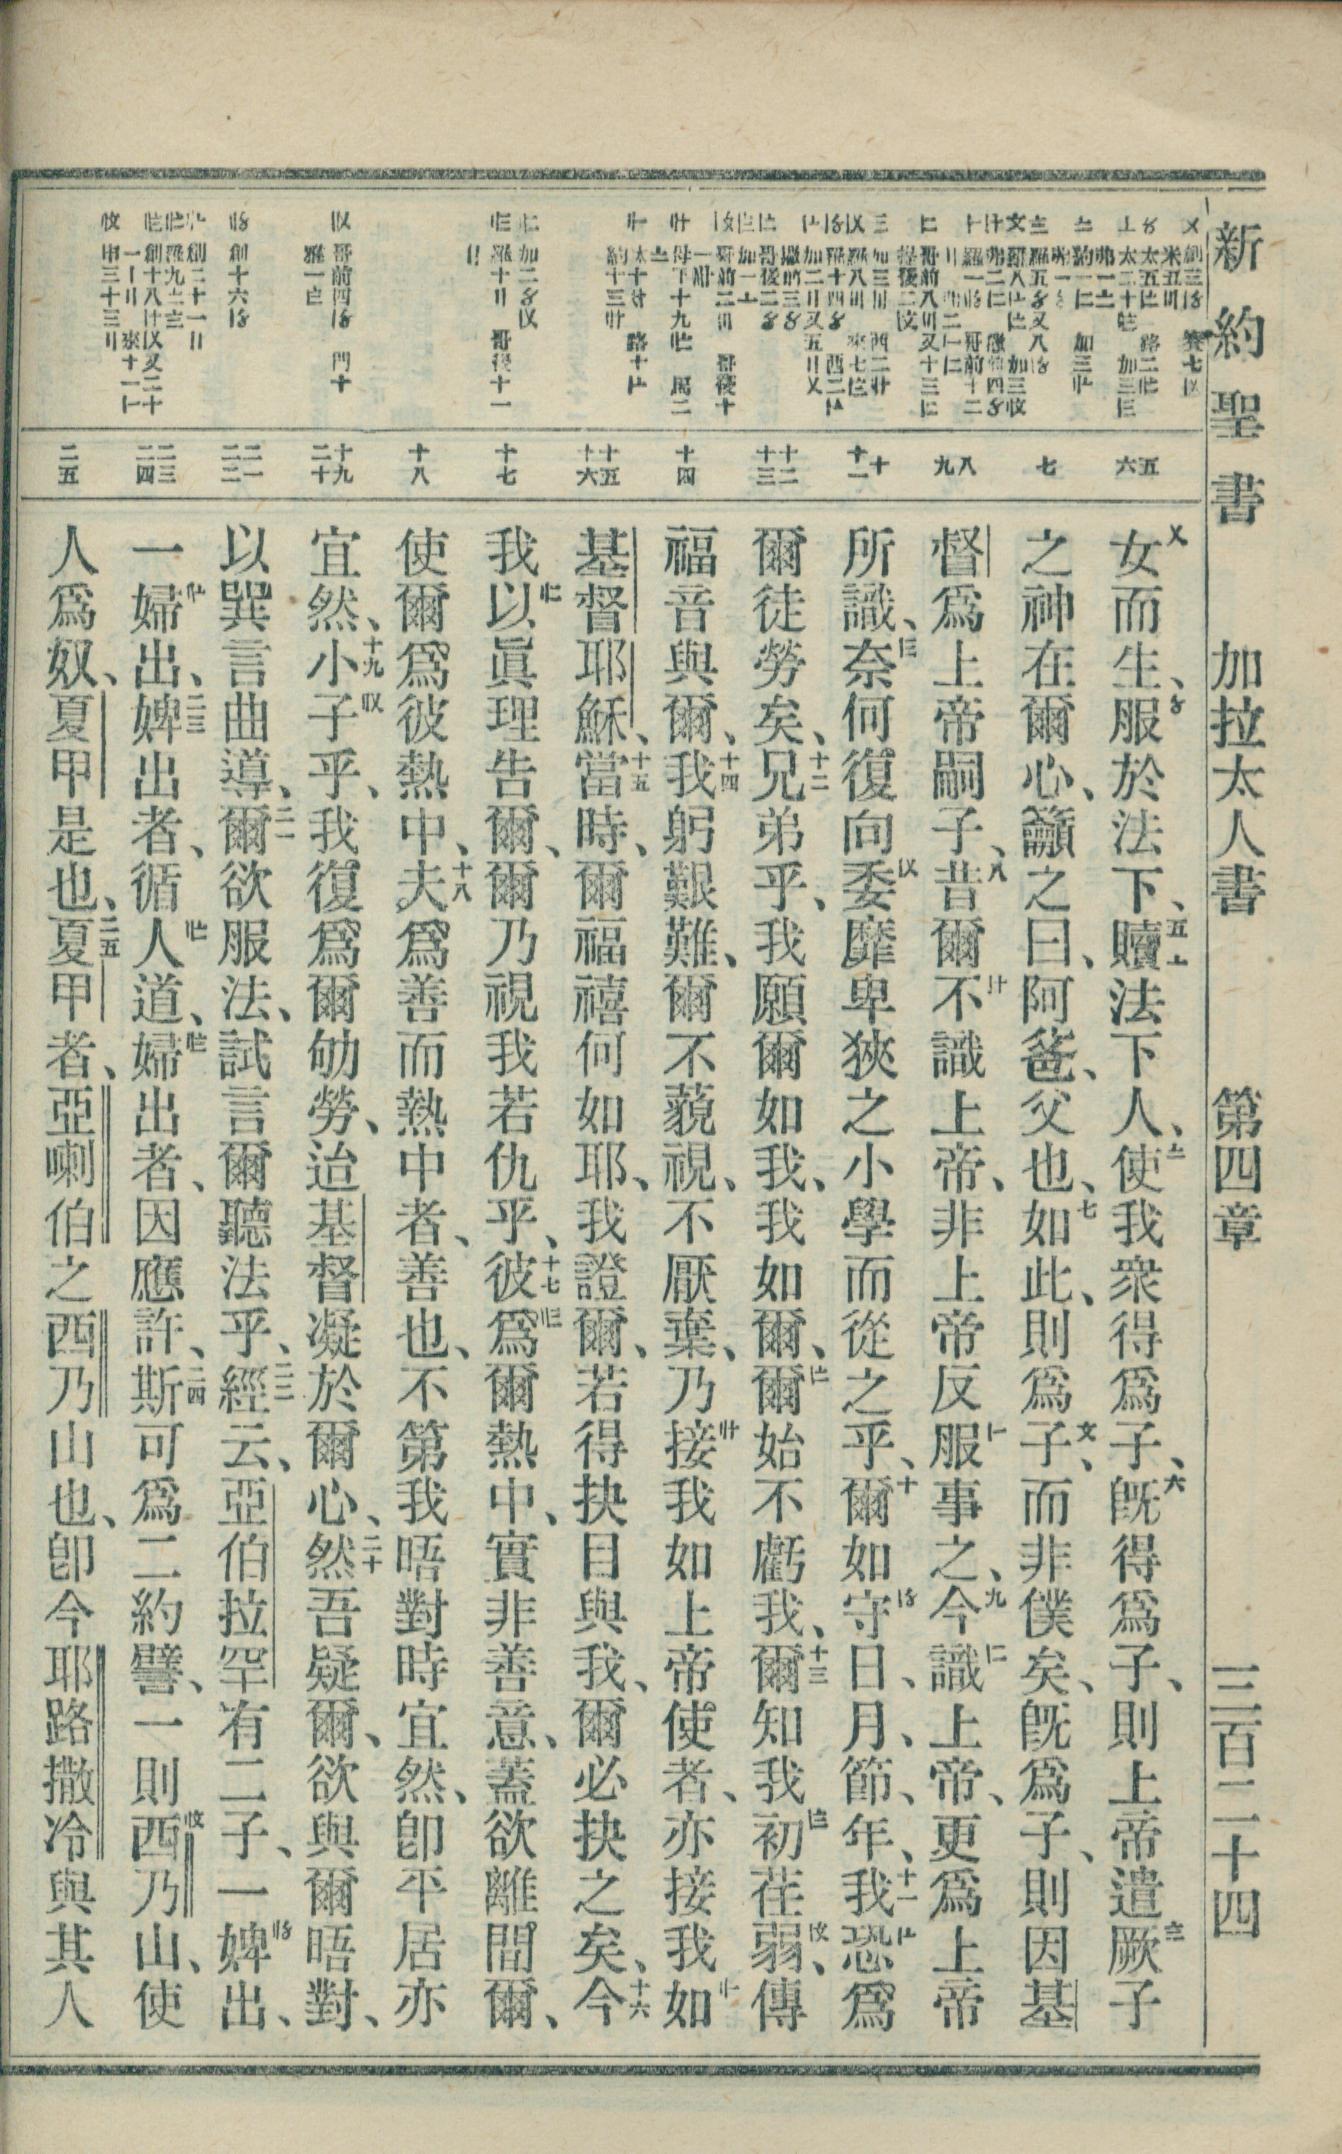 新約聖書 加拉太人書 第四章 三百二十四
五 六
七
八 九
十 十一
十二 十三
十四
十五 十六
十七
十八
十九 二十
二一 二二
二三 二四
二五
女而生、服於法下、五贖法下人、使我衆得爲子、六既得爲子、則上帝遣厥子
之神在爾心、籲之曰、阿爸、父也、七如此、則爲子、而非僕矣、既爲子、則因基
督爲上帝嗣子、八昔爾不識上帝、非上帝反服事之、九今識上帝、更爲上帝
所識、奈何復向委靡卑狹之小學而從之乎、十爾如守日、月、節、年、十一我恐爲
爾徒勞矣、十二兄弟乎、我願爾如我、我如爾、爾始不虧我、十三爾知我初茬弱、傳
福音與爾、十四我躬艱難、爾不藐視、不厭棄、乃接我如上帝使者、亦接我如
基督耶穌、十五當時、爾福禧何如耶、我證爾、若得抉目與我、爾必抉之矣、十六今
我以眞理告爾、爾乃視我若仇乎、十七彼爲爾熱中、實非善意、蓋欲離間爾、
使爾爲彼熱中、十八夫爲善而熱中者、善也、不第我晤對時宜然、卽平居亦
宜然、十九小子乎、我復爲爾劬勞、迨基督凝於爾心、二十然吾疑爾、欲與爾晤對、
以巽言曲導、二一爾欲服法、試言爾聽法乎、二二經云、亞伯拉罕有二子、一婢出、
一婦出、二三婢出者、循人道、婦出者、因應許、二四斯可爲二約譬、一則西乃山、使
人爲奴、夏甲是也、二五夏甲者、亞喇伯之西乃山也、卽今耶路撒冷與其人